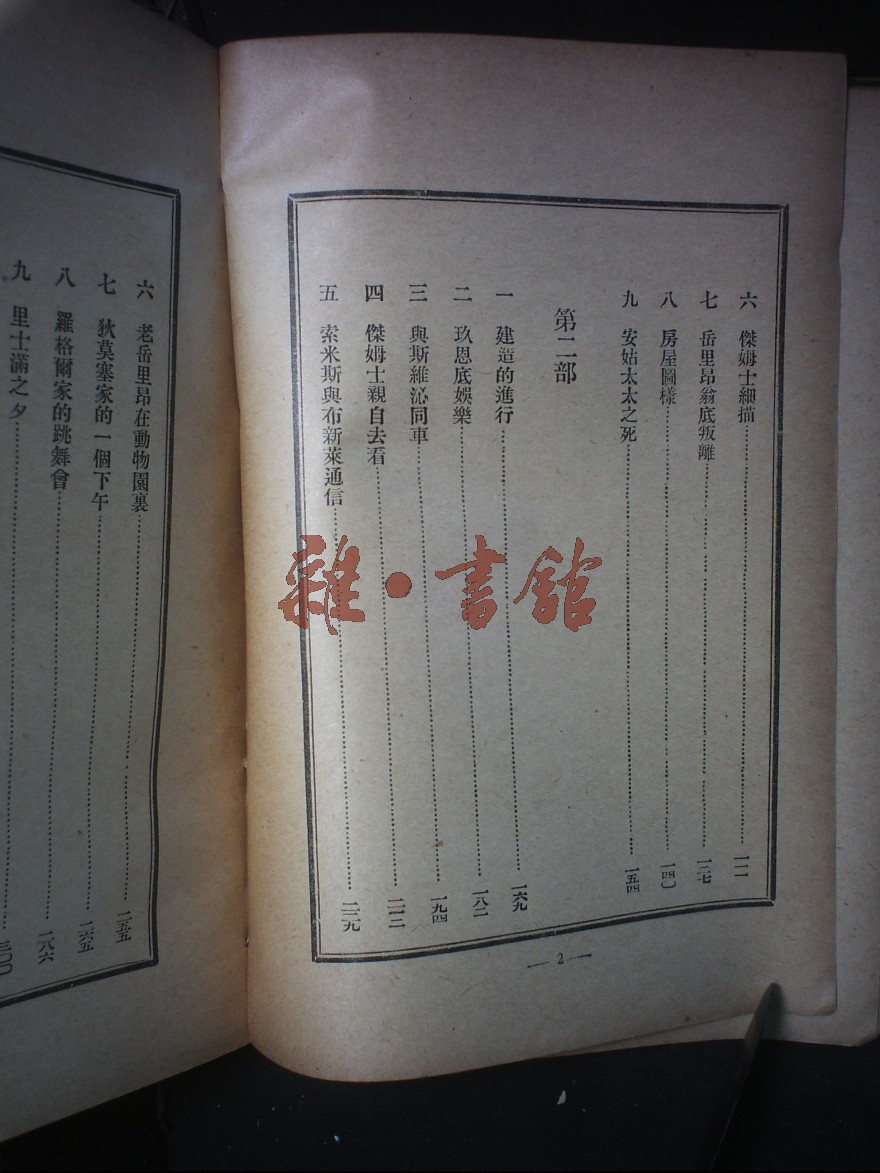 六　傑姆士細描……一一一
七　岳里昂翁底叛離……一二七
八　房屋圖樣……一四〇
九　安姑太太之死……一五四
第二部
一　建造的進行……一六九
二　玖恩底娛樂……一八二
三　與斯維沁同車……一九四
四　傑姆士親自去看……二一二
五　索米斯與布新萊通信……二二九
— 2 —
六　老岳里昂在動物園裏……二五五
七　狄莫塞家的一個下午……二六五
八　羅格爾家的跳舞會……二八六
九　里士滿之夕……三〇〇
雜·書館